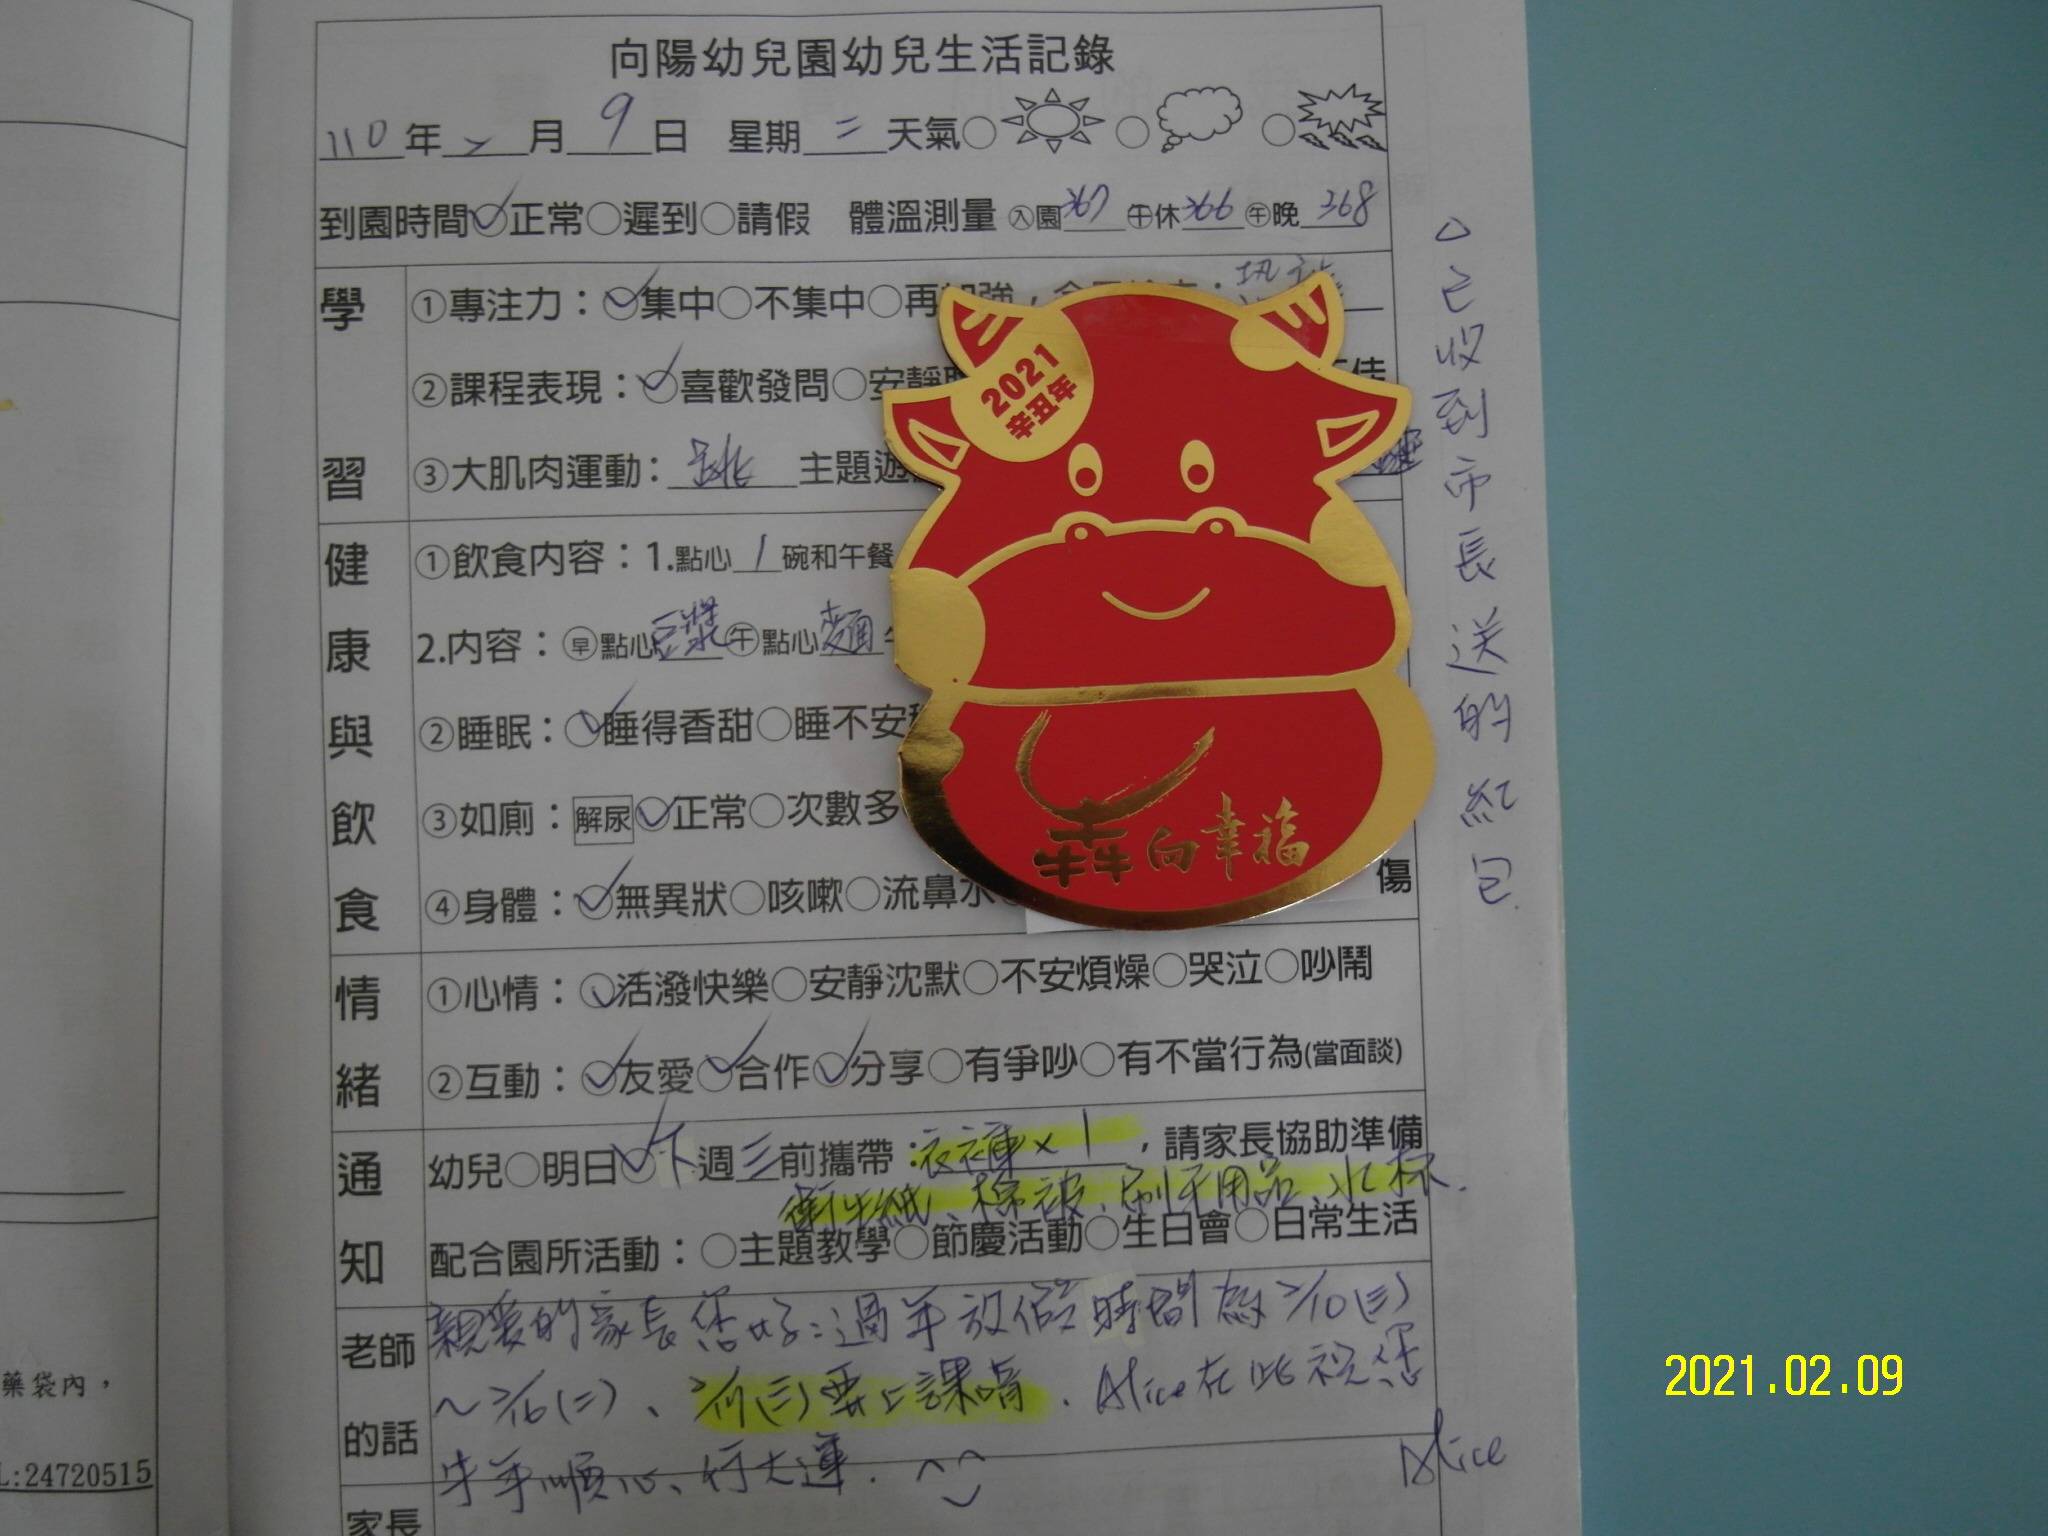 向陽幼兒園幼兒生活記錄
110年 2 月 9 日 星期 二 天氣○ ○ ○
到園時間○正常○遲到○請假 體溫測量 入園 367 午休 366 午晚 368
學習
①專注力：○集中○不集中○再
②課程表現：○喜歡發問○安靜 佳
③大肌肉運動：跳 主題遊
健康與飲食
①飲食內容：1.點心 1 碗和午餐
2.內容：早點心豆漿 午點心麵
②睡眠：○睡得香甜○睡不安
③如廁：解尿○正常○次數多
④身體：○無異狀○咳嗽○流鼻水 傷
2021
辛丑年
犇向幸福
情緒
①心情：○活潑快樂○安靜沈默○不安煩燥○哭泣○吵鬧
②互動：○友愛○合作○分享○有爭吵○有不當行為(當面談)
通知
幼兒○明日○下週三前攜帶：衣褲×1，請家長協助準備
衛生紙、棉被、刷牙用品、水杯.
配合園所活動：○主題教學○節慶活動○生日會○日常生活
老師的話
親愛的家長您好：過年放假時間為2/10(三)
～2/16(二)、2/17(三)要上課唷. Alice在此祝您
牛年順心、行大運.
Alice
家長
△已收到市長送的紅包.
藥袋內，
L:24720515
2021.02.09